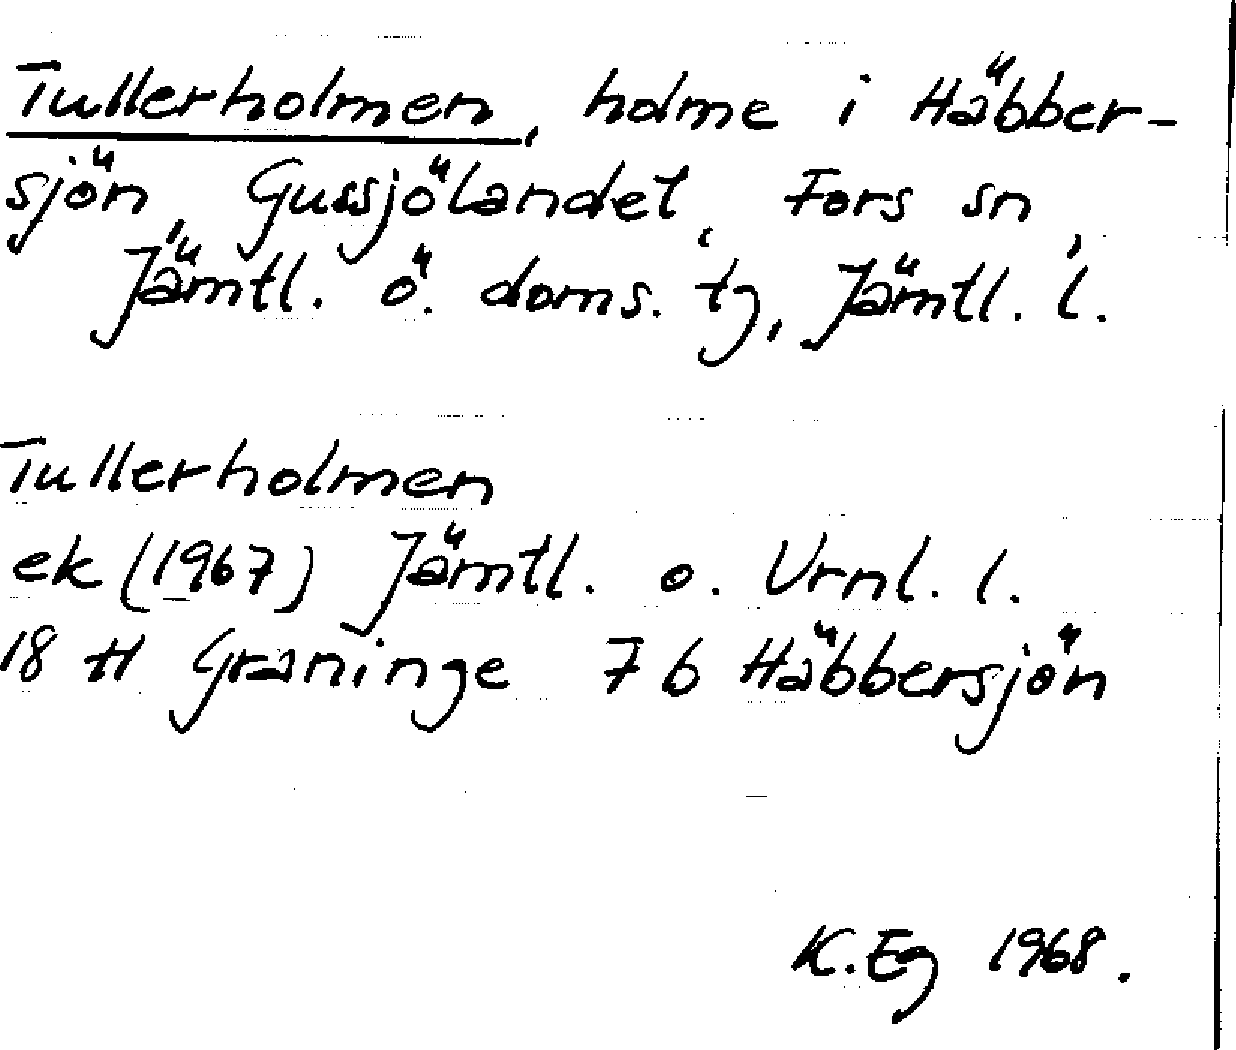 Tullerholmen, holme i Häbber-
sjön, Gussjölandet, Fors sn,
Jämtl. ö. doms. tg, Jämtl. l.
Tullerholmen
ek (1967) Jämtl. o. Vrnl. l.
18 H Graninge 7 b Häbbersjön
K. Eg 1968.